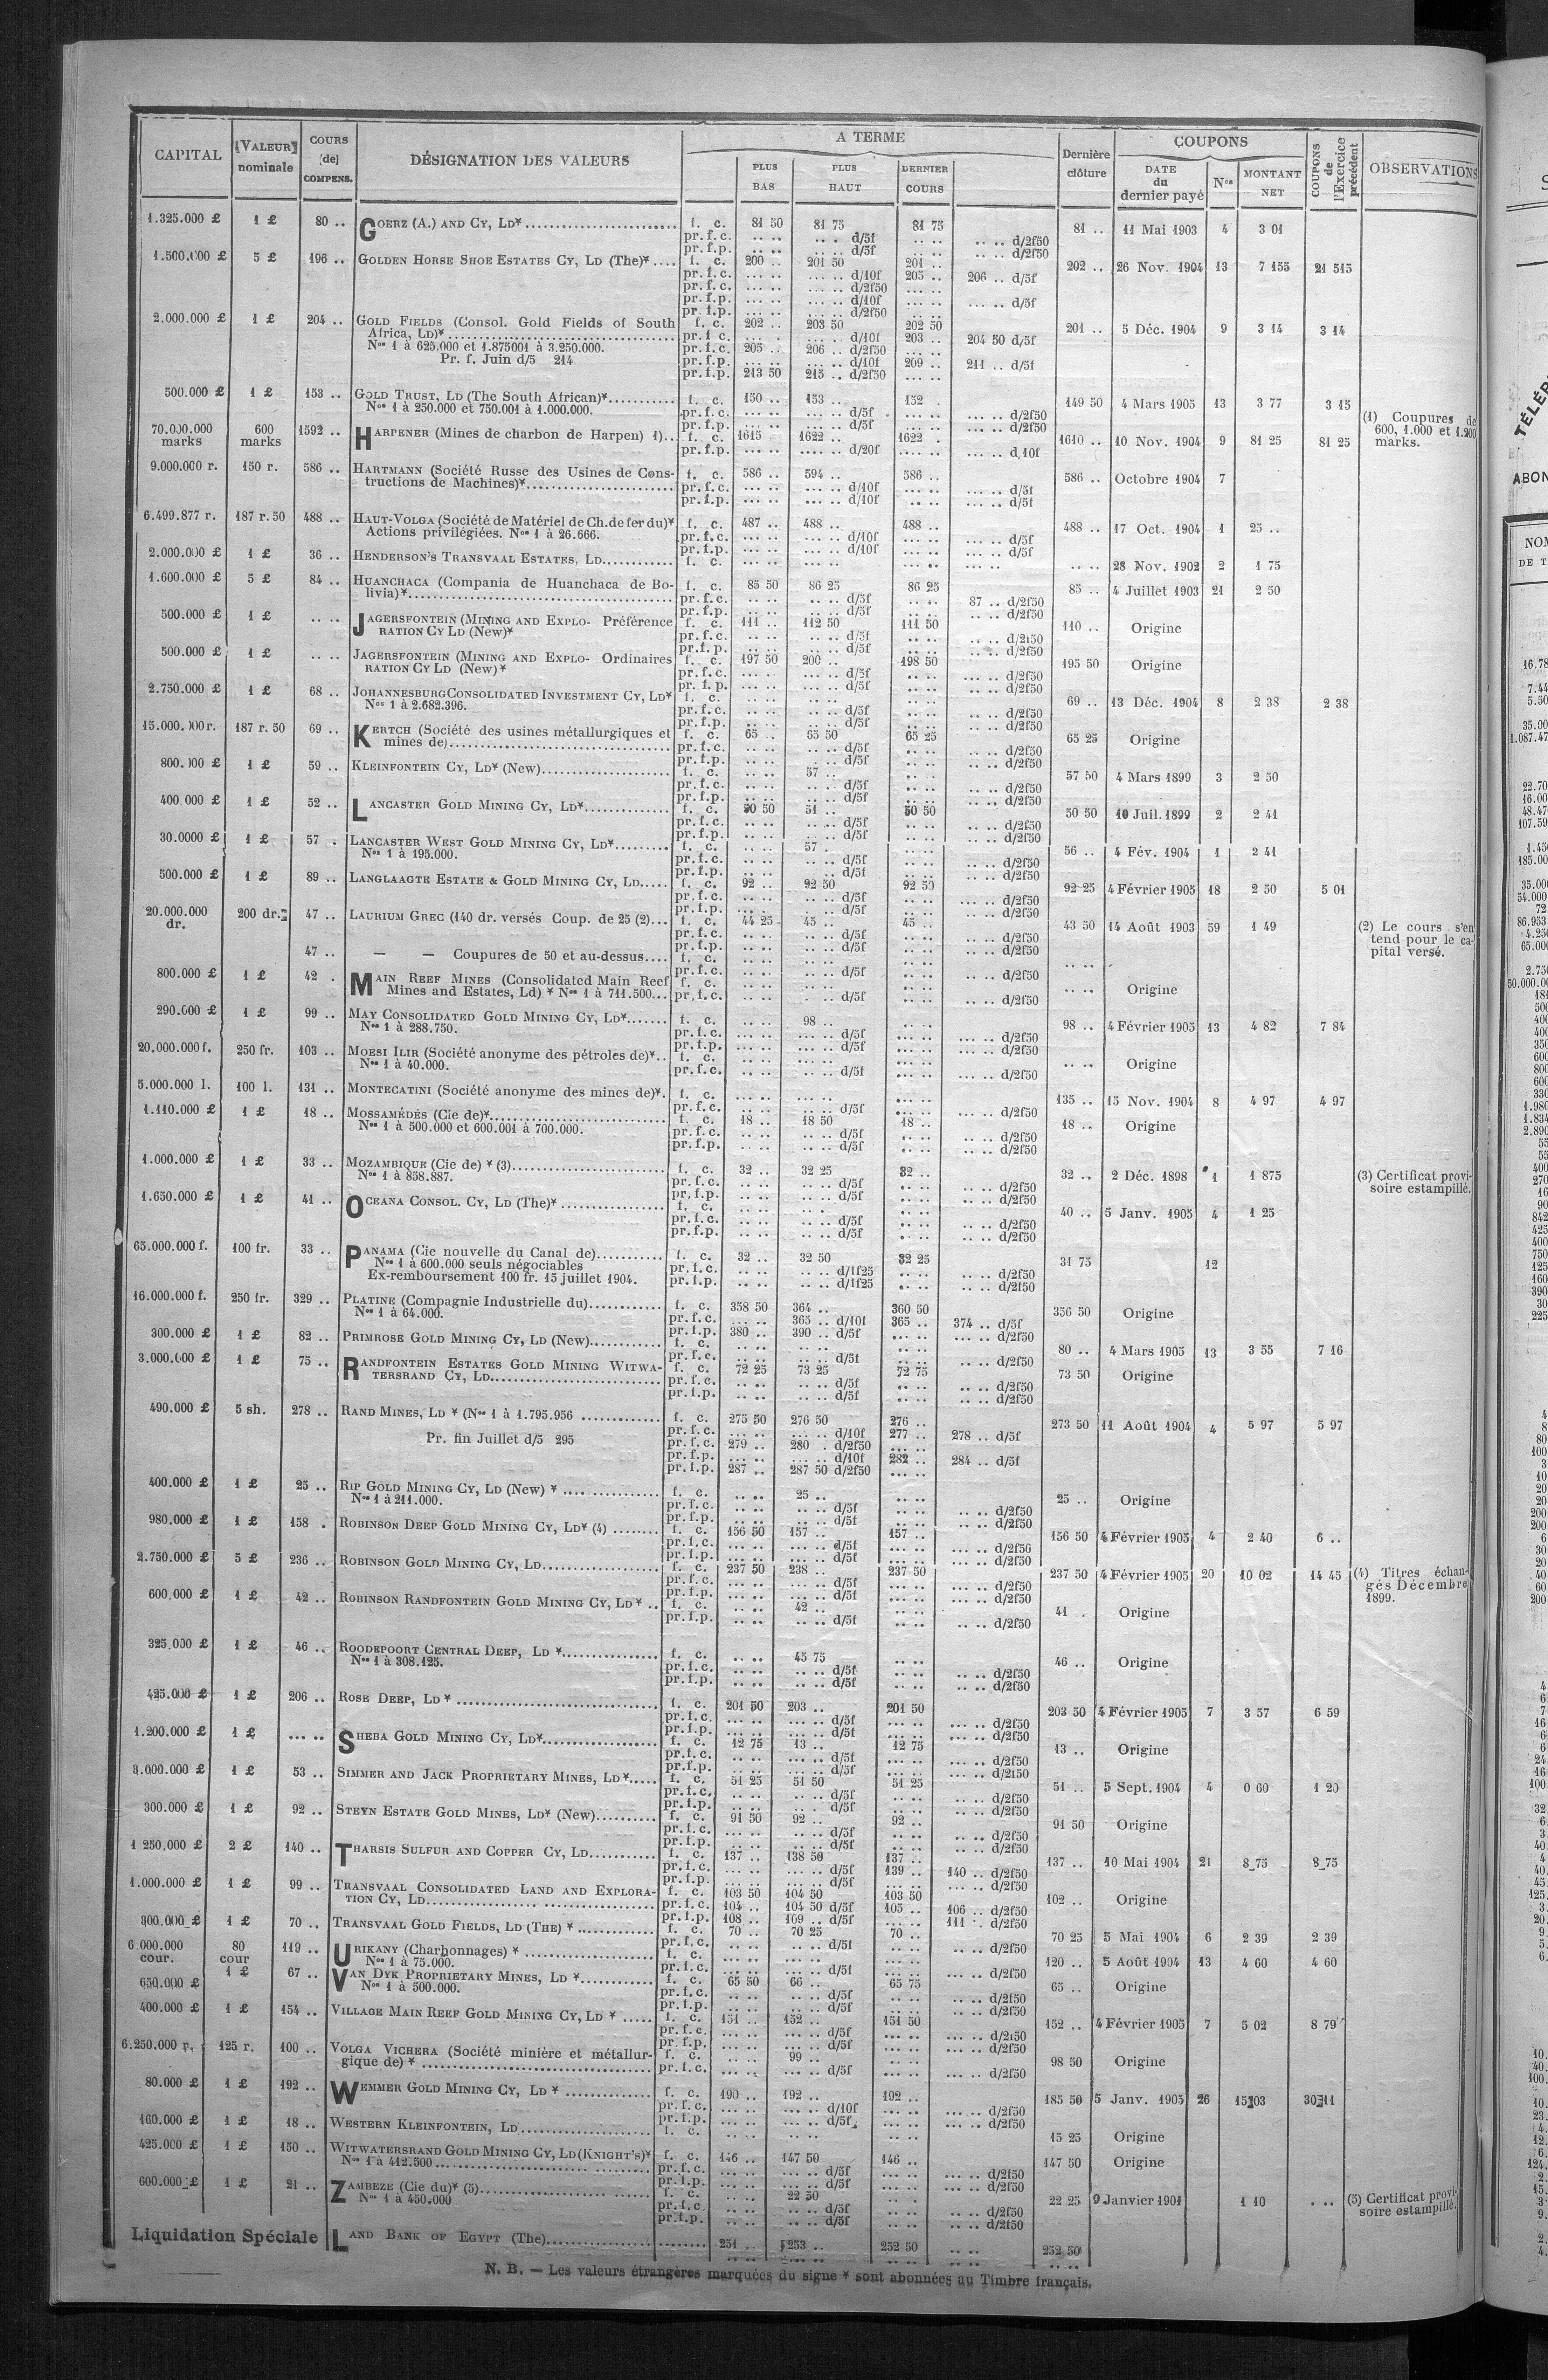 CAPITAL | VALEUR nominale | COURS de COMPENS. | DÉSIGNATION DES VALEURS | A TERME | PLUS BAS | PLUS HAUT | DERNIER COURS | Dernière clôture | COUPONS | DATE du dernier payé | Nos | MONTANT NET | COUPONS de l'Exercice précédent | OBSERVATIONS
1.325.000 £ 1 £ 80 .. GOERZ (A.) AND CY, LD* f. c. 81 50 81 75 81 75 81 .. 11 Mai 1903 4 3 01
pr. f. c. .. .. .. .. d/5f .. .. .. .. d/2f50
pr. f. p. .. .. .. .. d/5f .. .. .. .. d/2f50
1.500.000 £ 5 £ 196 .. GOLDEN HORSE SHOE ESTATES CY, LD (The)* f. c. 200 .. 201 50 201 .. 202 .. 26 Nov. 1904 13 7 155 21 515
pr. f. c. ... .. ... .. d/10f 205 .. 206 .. d/5f
pr. f. c. ... .. ... .. d/2f50
pr. f. p. ... .. ... .. d/10f ... .. ... .. d/5f
pr. f. p. ... .. ... .. d/2f50
2.000.000 £ 1 £ 204 .. GOLD FIELDS (Consol. Gold Fields of South f. c. 202 .. 203 50 202 50 201 .. 5 Déc. 1904 9 3 14 3 14
Africa, LD)* pr. f. c. ... .. d/10f 203 .. 204 50 d/5f
Nos 1 à 625.000 et 1.875001 à 3.250.000. pr. f. c. 205 .. 206 .. d/2f50
Pr. f. Juin d/5 214 pr. f. p. ... .. ... .. d/10f 209 .. 211 .. d/5f
pr. f. p. 213 50 215 .. d/2f50 ... ..
500.000 £ 1 £ 153 .. GOLD TRUST, LD (The South African)* f. c. 150 .. 153 .. 152 . 149 50 4 Mars 1905 13 3 77 3 15
Nos 1 à 250.000 et 750.001 à 1.000.000. pr. f. c. ... .. ... .. d/5f ... .. d/2f50
pr. f. p. ... .. ... .. d/5f ... .. d/2f50
70.000.000 marks 600 marks 1592 .. HARPENER (Mines de charbon de Harpen) 1) f. c. 1615 1622 .. 1622 . 1610 .. 10 Nov. 1904 9 81 25 81 25 (1) Coupures de 600, 1.000 et 1.200 marks.
pr. f. p. .... .. .... .. d/20f .... .. d,10f
9.000.000 r. 150 r. 586 .. HARTMANN (Société Russe des Usines de Cons- f. c. 586 .. 594 .. 586 .. 586 .. Octobre 1904 7
tructions de Machines)* pr. f. c. ... .. ... .. d/10f ... .. d/5f
pr. f. p. ... .. ... .. d/10f ... .. d/5f
6.499.877 r. 187 r. 50 488 .. HAUT-VOLGA (Société de Matériel de Ch. de fer du)* f. c. 487 .. 488 .. 488 .. 488 .. 17 Oct. 1904 1 25 ..
Actions privilégiées. Nos 1 à 26.666. pr. f. c. ... .. ... .. d/10f ... .. d/5f
pr. f. p. ... .. ... .. d/10f ... .. d/5f
2.000.000 £ 1 £ 36 .. HENDERSON'S TRANSVAAL ESTATES, LD f. c. .. .. 28 Nov. 1902 2 1 75
1.600.000 £ 5 £ 84 .. HUANCHACA (Compania de Huanchaca de Bo- f. c. 85 50 86 25 86 25 85 .. 4 Juillet 1903 21 2 50
livia)* pr. f. c. .. .. .. .. d/5f .. .. 87 .. d/2f50
pr. f. p. .. .. .. .. d/5f .. .. d/2f50
500.000 £ 1 £ .. .. JAGERSFONTEIN (MINING AND EXPLO- Préférence f. c. 111 .. 112 50 111 50 110 .. Origine
RATION CY LD (New)* pr. f. c. .. .. d/5f .. .. d/2f50
pr. f. p. .. .. d/5f .. .. d/2f50
500.000 £ 1 £ .. .. JAGERSFONTEIN (MINING AND EXPLO- Ordinaires f. c. 197 50 200 .. 198 50 195 50 Origine
RATION CY LD (New)* pr. f. c. ... .. d/5f ... .. d/2f50
pr. f. p. ... .. d/5f ... .. d/2f50
2.750.000 £ 1 £ 68 .. JOHANNESBURG CONSOLIDATED INVESTMENT CY, LD* f. c. .. .. 69 .. 13 Déc. 1904 8 2 38 2 38
Nos 1 à 2.682.396. pr. f. c. .. .. d/5f .. .. d/2f50
pr. f. p. .. .. d/5f .. .. d/2f50
15.000.000 r. 187 r. 50 69 .. KERTCH (Société des usines métallurgiques et f. c. 65 .. 65 50 65 25 65 25 Origine
mines de) pr. f. c. .. .. d/5f .. .. d/2f50
pr. f. p. .. .. d/5f .. .. d/2f50
800.000 £ 1 £ 59 .. KLEINFONTEIN CY, LD* (New) f. c. .. .. 57 .. 57 50 4 Mars 1899 3 2 50
pr. f. c. .. .. d/5f .. .. d/2f50
pr. f. p. .. .. d/5f .. .. d/2f50
400.000 £ 1 £ 52 .. LANCASTER GOLD MINING CY, LD* f. c. 50 50 51 .. 50 50 50 50 10 Juil. 1899 2 2 41
pr. f. c. .. .. d/5f .. .. d/2f50
pr. f. p. .. .. d/5f .. .. d/2f50
30.0000 £ 1 £ 57 . LANCASTER WEST GOLD MINING CY, LD* f. c. .. .. 57 .. 56 .. 4 Fév. 1904 1 2 41
Nos 1 à 195.000. pr. f. c. .. .. d/5f .. .. d/2f50
pr. f. p. .. .. d/5f .. .. d/2f50
500.000 £ 1 £ 89 .. LANGLAAGTE ESTATE & GOLD MINING CY, LD f. c. 92 .. 92 50 92 50 92 25 4 Février 1905 18 2 50 5 01
pr. f. c. .. .. d/5f .. .. d/2f50
pr. f. p. .. .. d/5f .. .. d/2f50
20.000.000 dr. 200 dr. 47 .. LAURIUM GREC (140 dr. versés Coup. de 25 (2) f. c. 44 25 45 .. 45 .. 43 50 14 Août 1903 59 1 49 (2) Le cours s'entend pour le capital versé.
pr. f. c. .. .. d/5f .. .. d/2f50
pr. f. p. .. .. d/5f .. .. d/2f50
47 .. — — Coupures de 50 et au-dessus f. c. .. ..
pr. f. c. .. .. d/5f .. .. d/2f50
800.000 £ 1 £ 42 . MAIN REEF MINES (Consolidated Main Reef f. c. .. .. Origine
Mines and Estates, Ld) * Nos 1 à 711.500 pr. f. c. .. .. d/5f .. .. d/2f50
290.000 £ 1 £ 99 .. MAY CONSOLIDATED GOLD MINING CY, LD* f. c. .. .. 98 .. 98 .. 4 Février 1905 13 4 82 7 84
Nos 1 à 288.750. pr. f. c. ... .. d/5f ... .. d/2f50
pr. f. p. ... .. d/5f ... .. d/2f50
20.000.000 f. 250 fr. 103 .. MOESI ILIR (Société anonyme des pétroles de)* f. c. ... .. Origine
Nos 1 à 40.000. pr. f. c. ... .. d/5f ... .. d/2f50
5.000.000 l. 100 l. 131 .. MONTECATINI (Société anonyme des mines de)* f. c. ... .. 135 .. 15 Nov. 1904 8 4 97 4 97
pr. f. c. ... .. d/5f ... .. d/2f50
1.110.000 £ 1 £ 18 .. MOSSAMÉDÈS (Cie de)* f. c. 18 .. 18 50 18 .. 18 .. Origine
Nos 1 à 500.000 et 600.001 à 700.000. pr. f. c. .. .. d/5f .. .. d/2f50
pr. f. p. .. .. d/5f .. .. d/2f50
1.000.000 £ 1 £ 33 .. MOZAMBIQUE (Cie de) * (3) f. c. 32 .. 32 25 32 .. 32 .. 2 Déc. 1898 1 1 875 (3) Certificat provisoire estampillé.
Nos 1 à 858.887. pr. f. c. .. .. d/5f .. .. d/2f50
pr. f. p. .. .. d/5f .. .. d/2f50
1.650.000 £ 1 £ 41 .. OCEANA CONSOL. CY, LD (The)* f. c. .. .. 40 .. 5 Janv. 1905 4 1 25
pr. f. c. .. .. d/5f .. .. d/2f50
pr. f. p. .. .. d/5f .. .. d/2f50
65.000.000 f. 100 fr. 33 .. PANAMA (Cie nouvelle du Canal de) f. c. 32 .. 32 50 32 25 31 75 12
Nos 1 à 600.000 seuls négociables pr. f. c. .. .. d/1f25 .. .. d/2f50
Ex-remboursement 100 fr. 15 juillet 1904. pr. f. p. .. .. d/1f25 .. .. d/2f50
16.000.000 f. 250 fr. 329 .. PLATINE (Compagnie Industrielle du) f. c. 358 50 364 .. 360 50 356 50 Origine
Nos 1 à 64.000. pr. f. c. ... .. 365 .. d/10f 365 .. 374 .. d/5f
pr. f. p. 380 .. 390 .. d/5f ... .. d/2f50
300.000 £ 1 £ 82 .. PRIMROSE GOLD MINING CY, LD (New) f. c. .. .. 80 .. 4 Mars 1905 13 3 55 7 16
pr. f. c. .. .. d/5f .. .. d/2f50
3.000.000 £ 1 £ 75 .. RANDFONTEIN ESTATES GOLD MINING WITWA- f. c. 72 25 73 25 72 75 73 50 Origine
TERSRAND CY, LD pr. f. c. .. .. d/5f .. .. d/2f50
pr. f. p. .. .. d/5f .. .. d/2f50
490.000 £ 5 sh. 278 .. RAND MINES, LD * (Nos 1 à 1.795.956 f. c. 275 50 276 50 276 .. 273 50 11 Août 1904 4 5 97 5 97
pr. f. c. ... .. d/10f 277 .. 278 .. d/5f
Pr. fin Juillet d/5 295 pr. f. c. 279 .. 280 . d/2f50 ... ..
pr. f. p. ... .. d/10f 282 .. 284 .. d/5f
pr. f. p. 287 .. 287 50 d/2f50 ... ..
400.000 £ 1 £ 25 .. RIP GOLD MINING CY, LD (New) * f. c. .. .. 25 .. 25 .. Origine
Nos 1 à 211.000. pr. f. c. .. .. d/5f .. .. d/2f50
pr. f. p. .. .. d/5f .. .. d/2f50
980.000 £ 1 £ 158 . ROBINSON DEEP GOLD MINING CY, LD* (4) f. c. 156 50 157 .. 157 .. 156 50 4 Février 1905 4 2 40 6 ..
pr. f. c. ... .. d/5f ... .. d/2f50
pr. f. p. ... .. d/5f ... .. d/2f50
2.750.000 £ 5 £ 236 .. ROBINSON GOLD MINING CY, LD f. c. 237 50 238 .. 237 50 237 50 4 Février 1905 20 10 02 14 45 (4) Titres échangés Décembre 1899.
pr. f. c. ... .. d/5f ... .. d/2f50
pr. f. p. ... .. d/5f ... .. d/2f50
600,000 £ 1 £ 42 .. ROBINSON RANDFONTEIN GOLD MINING CY, LD * f. c. .. .. 42 .. 41 . Origine
pr. f. p. .. .. d/5f .. .. d/2f50
325.000 £ 1 £ 46 .. ROODEPOORT CENTRAL DEEP, LD * f. c. .. .. 45 75 46 .. Origine
Nos 1 à 308.125. pr. f. c. .. .. d/5f .. .. d/2f50
pr. f. p. .. .. d/5f .. .. d/2f50
425.000 £ 1 £ 206 .. ROSE DEEP, LD * f. c. 201 50 203 .. 201 50 203 50 4 Février 1905 7 3 57 6 59
pr. f. c. ... .. d/5f ... .. d/2f50
pr. f. p. ... .. d/5f ... .. d/2f50
1.200.000 £ 1 £ ... .. SHEBA GOLD MINING CY, LD* f. c. 12 75 13 .. 12 75 13 .. Origine
pr. f. c. .. .. d/5f ... .. d/2f50
pr. f. p. .. .. d/5f ... .. d/2f50
3.000.000 £ 1 £ 53 .. SIMMER AND JACK PROPRIETARY MINES, LD * f. c. 51 25 51 50 51 25 51 .. 5 Sept. 1904 4 0 60 1 20
pr. f. c. .. .. d/5f .. .. d/2f50
pr. f. p. .. .. d/5f .. .. d/2f50
300.000 £ 1 £ 92 .. STEYN ESTATE GOLD MINES, LD* (New) f. c. 91 50 92 .. 92 .. 91 50 Origine
pr. f. c. ... .. d/5f .. .. d/2f50
pr. f. p. ... .. d/5f .. .. d/2f50
1 250,000 £ 2 £ 140 .. THARSIS SULFUR AND COPPER CY, LD f. c. 137 .. 138 50 137 .. 137 .. 10 Mai 1904 21 8 75 8 75
pr. f. c. ... .. d/5f 139 .. 140 .. d/2f50
pr. f. p. ... .. d/5f ... .. d/2f50
1.000.000 £ 1 £ 99 .. TRANSVAAL CONSOLIDATED LAND AND EXPLORA- f. c. 103 50 104 50 103 50 102 .. Origine
TION CY, LD pr. f. c. 104 .. 104 50 d/5f 105 .. 106 .. d/2f50
pr. f. p. 108 .. 109 .. d/5f ... .. 111 . d/2f50
300.000 £ 1 £ 70 .. TRANSVAAL GOLD FIELDS, LD (THE) * f. c. 70 .. 70 25 70 .. 70 25 5 Mai 1904 6 2 39 2 39
pr. f. c. .. .. d/5f .. .. d/2f50
6.000.000 cour. 80 cour 119 .. URIKANY (Charbonnages) * f. c. ... .. 120 .. 5 Août 1904 13 4 60 4 60
Nos 1 à 75.000. pr. f. c. ... .. d/5f ... .. d/2f50
650.000 £ 1 £ 67 .. VAN DYK PROPRIETARY MINES, LD * f. c. 65 50 66 .. 65 75 65 .. Origine
Nos 1 à 500.000. pr. f. c. .. .. d/5f .. .. d/2f50
pr. f. p. .. .. d/5f .. .. d/2f50
400.000 £ 1 £ 154 .. VILLAGE MAIN REEF GOLD MINING CY, LD * f. c. 151 .. 152 .. 151 50 152 .. 4 Février 1905 7 5 02 8 79
pr. f. c. ... .. d/5f ... .. d/2f50
pr. f. p. ... .. d/5f ... .. d/2f50
6.250.000 r. 125 r. 100 .. VOLGA VICHERA (Société minière et métallur- f. c. .. .. 99 .. 98 50 Origine
gique de) * pr. f. c. ... .. d/5f ... .. d/2f50
80.000 £ 1 £ 192 .. WEMMER GOLD MINING CY, LD * f. c. 190 .. 192 .. 192 .. 185 50 5 Janv. 1905 26 15 03 30 11
pr. f. c. ... .. d/10f ... .. d/2f50
pr. f. p. ... .. d/5f ... .. d/2f50
160.000 £ 1 £ 18 .. WESTERN KLEINFONTEIN, LD f. c. .. .. 15 25 Origine
425.000 £ 1 £ 150 .. WITWATERSRAND GOLD MINING CY, LD (KNIGHT'S)* f. c. 146 .. 147 50 146 .. 147 50 Origine
Nos 1 à 412.500 pr. f. c. ... .. d/5f ... .. d/2f50
pr. f. p. ... .. d/5f ... .. d/2f50
600.000 £ 1 £ 21 .. ZAMBEZE (Cie du)* (5) f. c. .. .. 22 50 22 25 9 Janvier 1901 1 10 . .. (5) Certificat provisoire estampillé.
Nos 1 à 450.000 pr. f. c. .. .. d/5f .. .. d/2f50
pr. f. p. .. .. d/5f .. .. d/2f50
Liquidation Spéciale LAND BANK OF EGYPT (The) 251 .. 253 .. 252 50 252 50
N. B. — Les valeurs étrangères marquées du signe * sont abonnées au Timbre français.